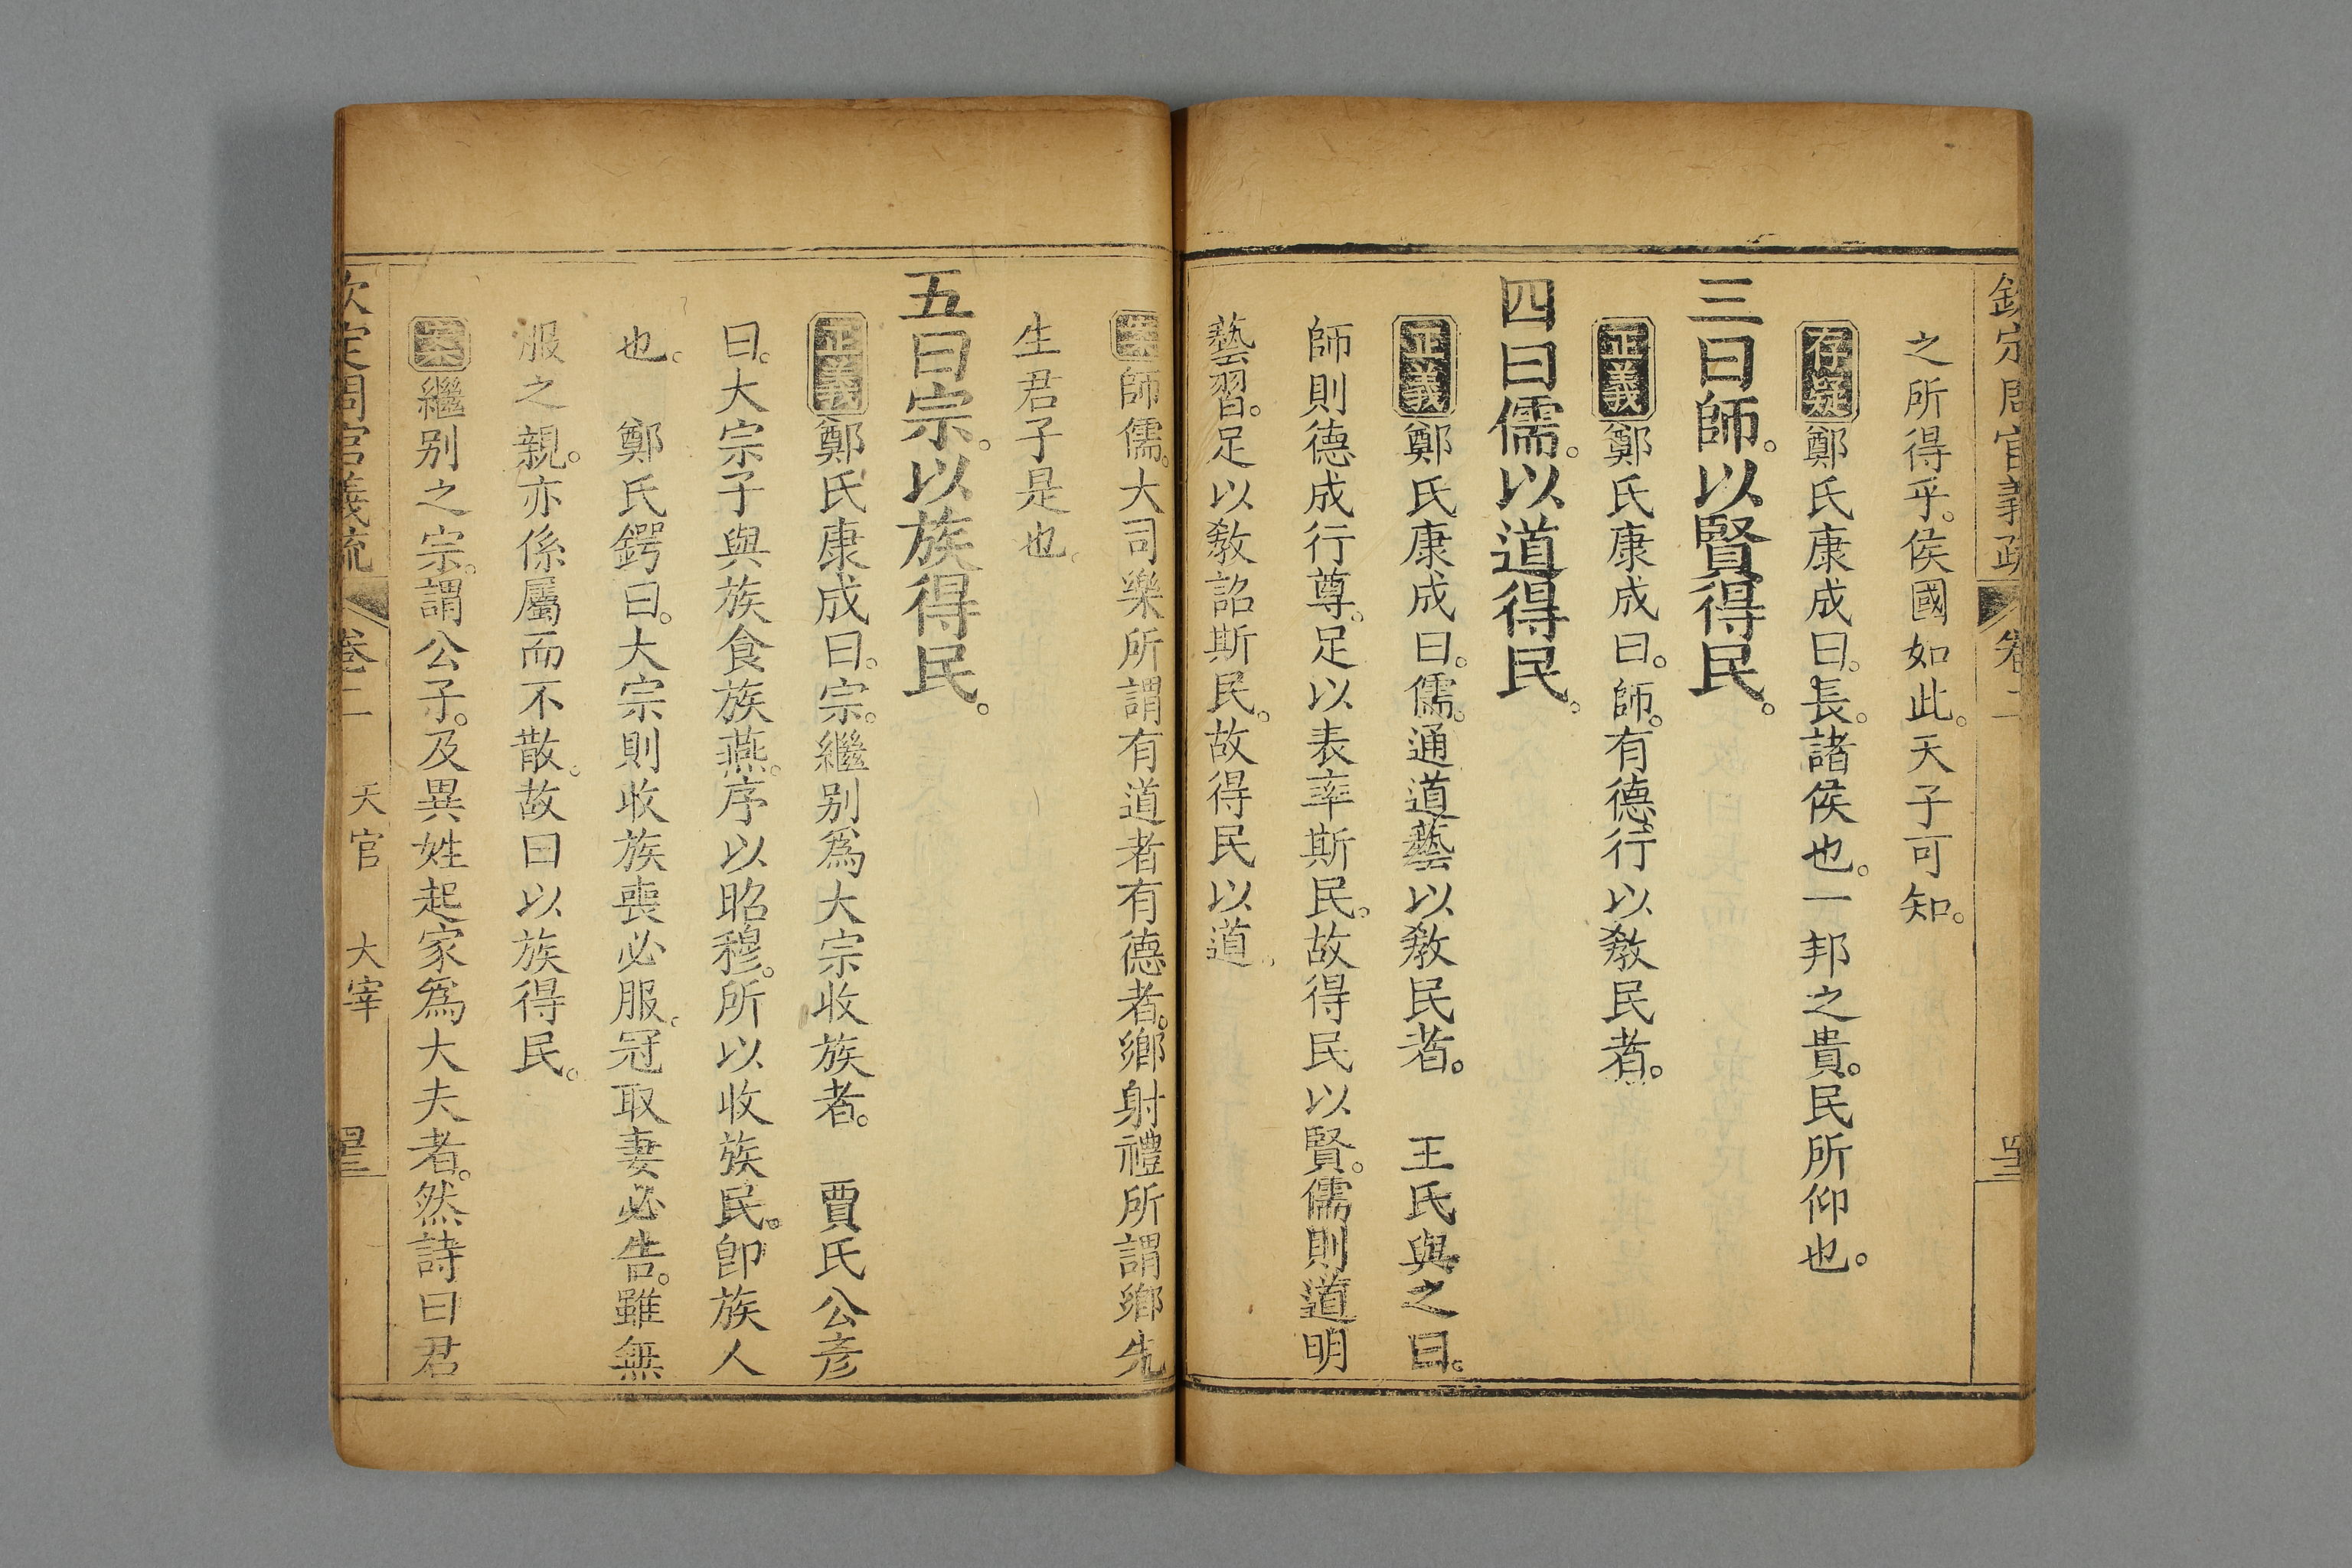 欽定周官義疏 卷二
之所得乎。侯國如此。天子可知。
存疑鄭氏康成曰。長。諸侯也。一邦之貴。民所仰也。
三曰師。以賢得民。
正義鄭氏康成曰。師。有德行以敎民者。
四曰儒。以道得民。
正義鄭氏康成曰。儒。通道藝以敎民者。 王氏與之曰。
師則德成行尊。足以表率斯民。故得民以賢。儒則道明
藝習。足以敎詔斯民。故得民以道。
案師儒。大司樂所謂有道者有德者。鄉射禮所謂鄉先
生君子是也。
五曰宗。以族得民。
正義鄭氏康成曰。宗。繼别爲大宗收族者。 賈氏公彥
曰。大宗子與族食族燕。序以昭穆。所以收族民。卽族人
也。 鄭氏鍔曰。大宗則收族喪必服。冠取妻必告。雖無
服之親。亦係屬而不散。故曰以族得民。
案繼别之宗。謂公子。及異姓起家爲大夫者。然詩曰君
欽定周官義疏 卷二 天官 大宰 四三